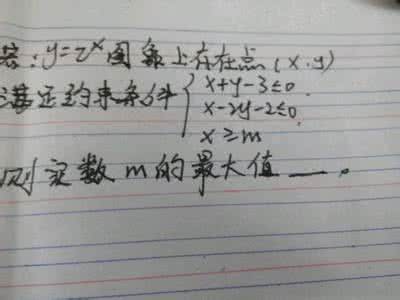 若:y=2^x图象上存在点(x.y)
满足约束条件{x+y-3≤0.
x-2y-2≤0.
x≥m
则实数m的最大值__。